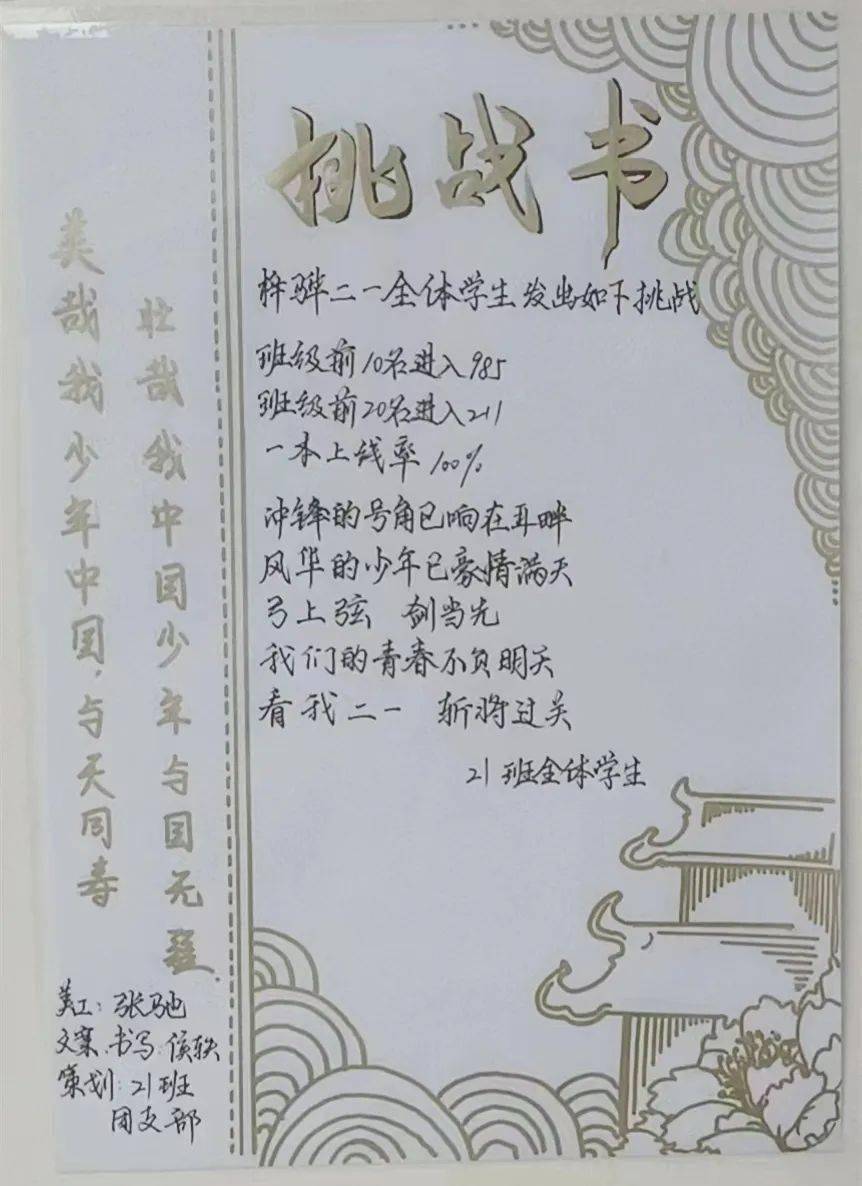 挑战书
梓骅二一全体学生发出如下挑战
班级前10名进入985
班级前20名进入211
一本上线率100%
冲锋的号角已响在耳畔
风华的少年已豪情满天
弓上弦 剑当先
我们的青春不负明天
看我二一 斩将过关
21班全体学生
美哉我少年中国,与天同寿
壮哉我中国少年与国无疆.
美工:张驰
文案、书写:侯轶
策划:21班
团支部